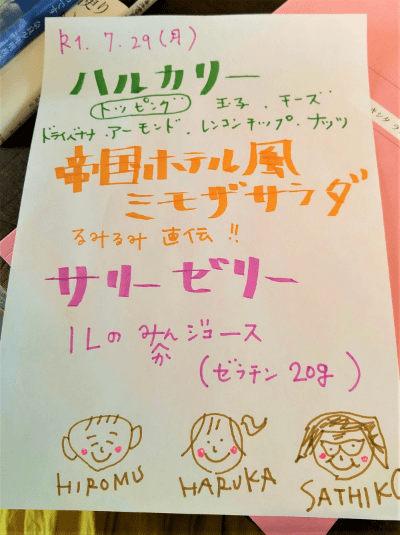 R1. 7. 29 (月)
ハルカリー
トッピング 玉子 . チーズ
ドライバナナ . アーモンド . レンコンチップ . ナッツ
帝国ホテル風
ミモザサラダ
るみるみ 直伝 !!
サリーゼリー
1Lの みかんジュース
(ゼラチン 20g)
HIROMU HARUKA SATHIKO